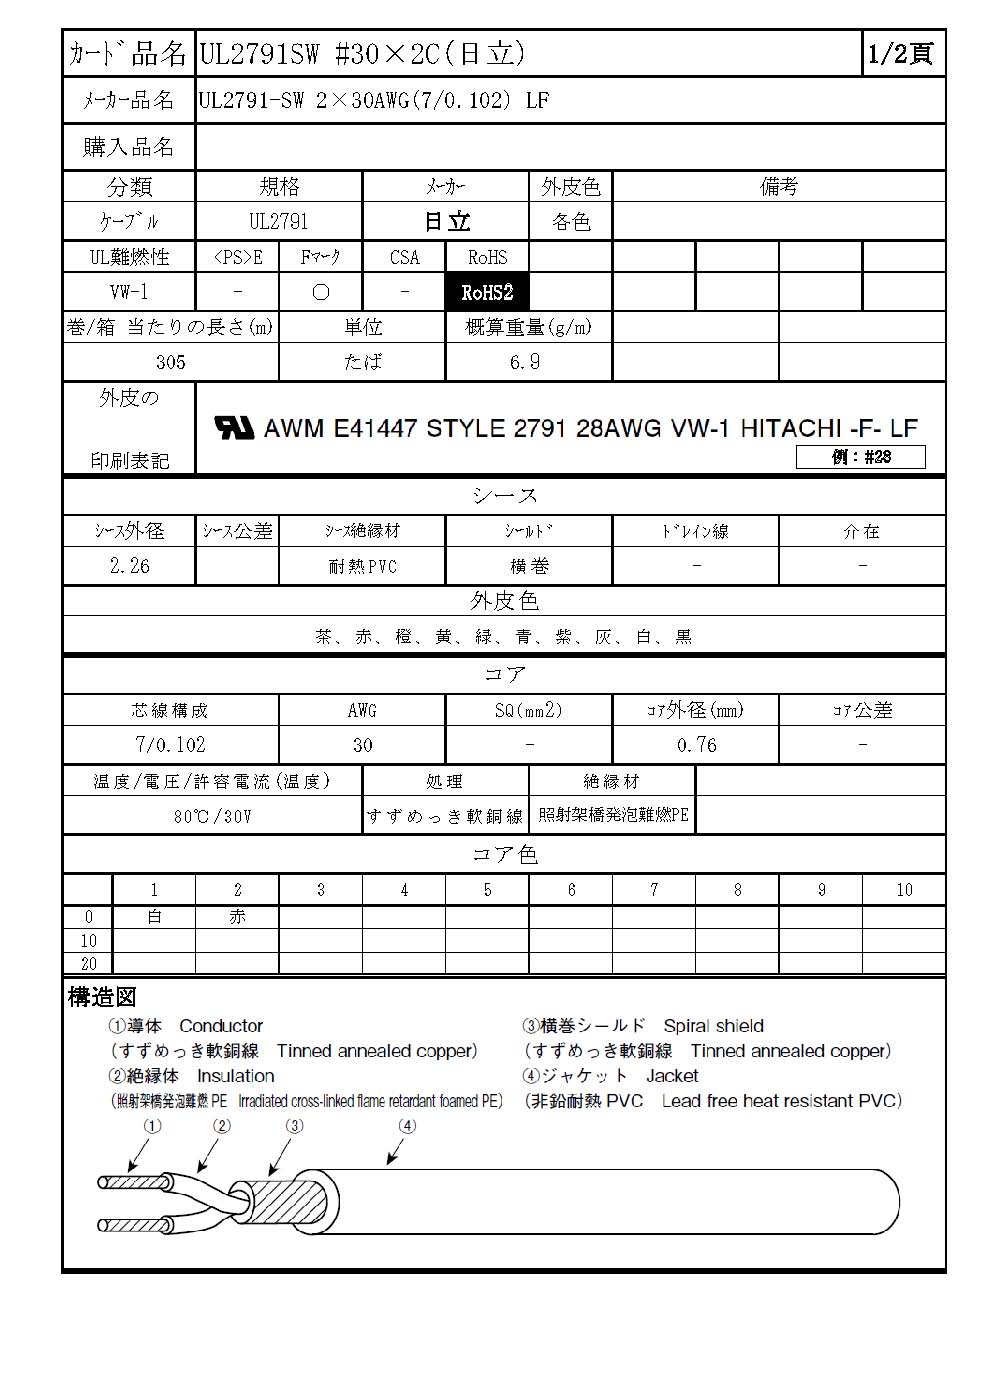 ｶｰﾄﾞ品名 UL2791SW #30×2C(日立) 1/2頁
ﾒｰｶｰ品名 UL2791-SW 2×30AWG(7/0.102) LF
購入品名
分類 規格 ﾒｰｶｰ 外皮色 備考
ｹｰﾌﾞﾙ UL2791 日立 各色
UL難燃性 <PS>E Fﾏｰｸ CSA RoHS
VW-1 - ○ - RoHS2
巻/箱 当たりの長さ(m) 単位 概算重量(g/m)
305 たば 6.9
外皮の
印刷表記
AWM E41447 STYLE 2791 28AWG VW-1 HITACHI -F- LF
例：#28
シース
ｼｰｽ外径 ｼｰｽ公差 ｼｰｽ絶縁材 ｼｰﾙﾄﾞ ﾄﾞﾚｲﾝ線 介在
2.26 耐熱PVC 横巻 - -
外皮色
茶、赤、橙、黄、緑、青、紫、灰、白、黒
コア
芯線構成 AWG SQ(mm2) ｺｱ外径(mm) ｺｱ公差
7/0.102 30 - 0.76 -
温度/電圧/許容電流(温度) 処理 絶縁材
80℃/30V すずめっき軟銅線 照射架橋発泡難燃PE
コア色
1 2 3 4 5 6 7 8 9 10
0 白 赤
10
20
構造図
①導体 Conductor
(すずめっき軟銅線 Tinned annealed copper)
②絶縁体 Insulation
(照射架橋発泡難燃PE Irradiated cross-linked flame retardant foamed PE)
③横巻シールド Spiral shield
(すずめっき軟銅線 Tinned annealed copper)
④ジャケット Jacket
(非鉛耐熱PVC Lead free heat resistant PVC)
① ② ③ ④